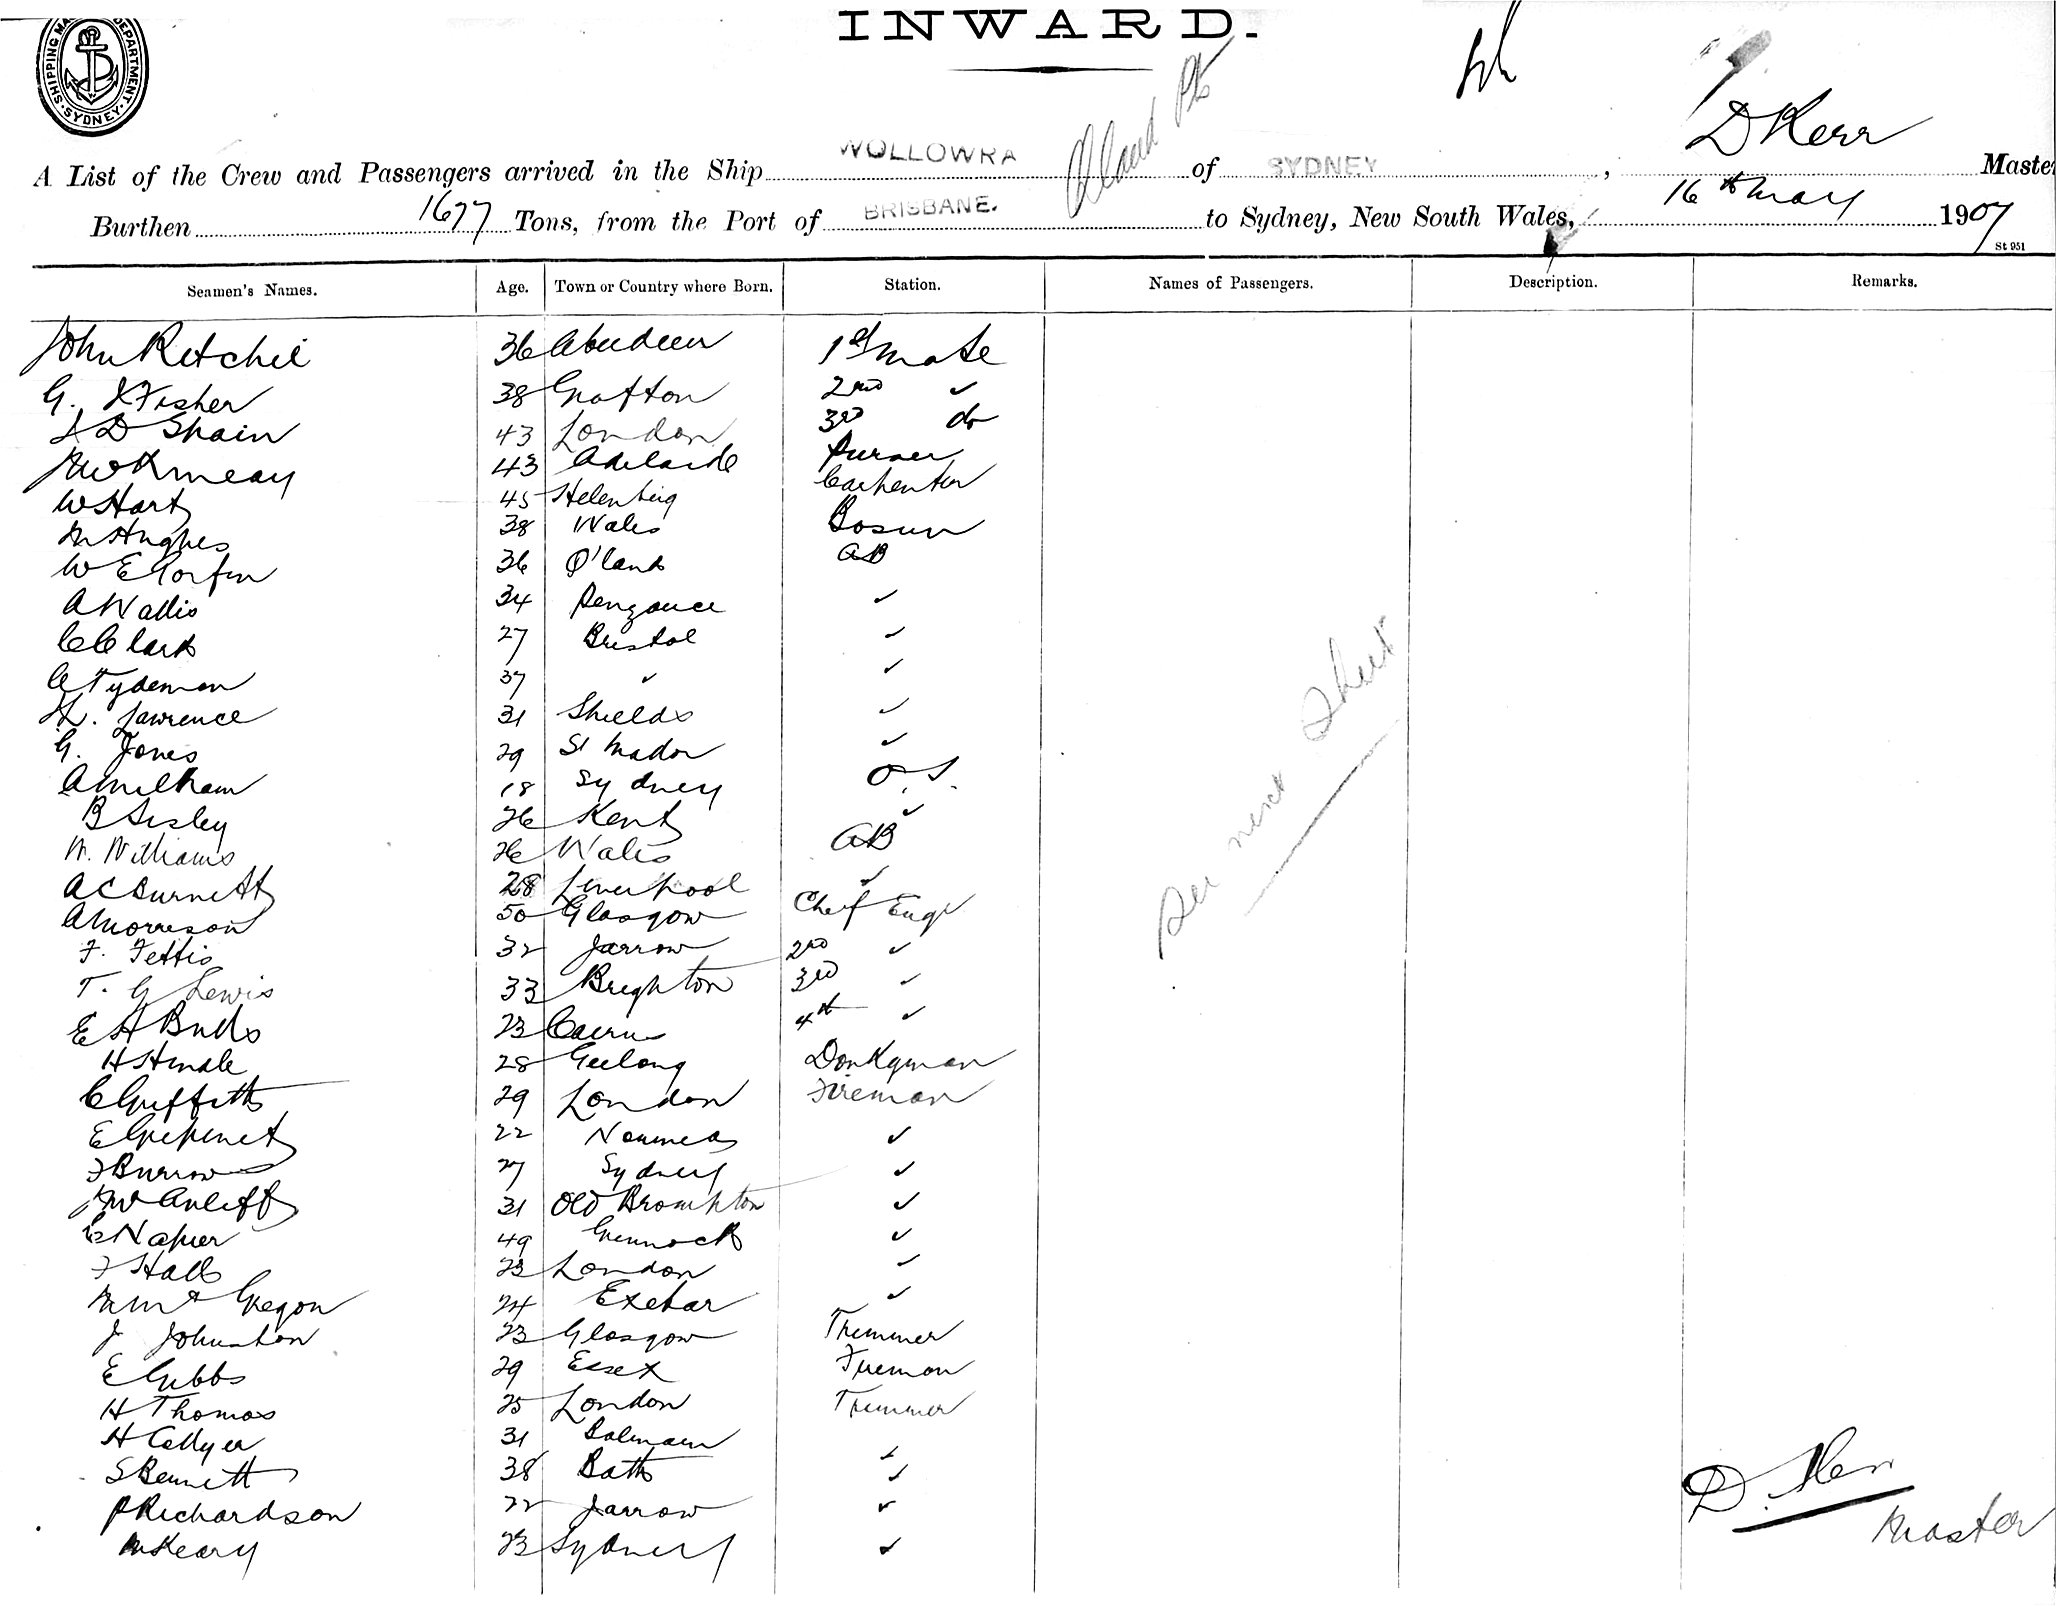 SHIPPING MA DEPARTMENT. SYDNEY.
INWARD.
D Kerr
A List of the Crew and Passengers arrived in the Ship WOLLOWRA of SYDNEY, Master
Burthen 1677 Tons, from the Port of BRISBANE. to Sydney, New South Wales, 16th May 1907
St 951
Seamen's Names. Age. Town or Country where Born. Station. Names of Passengers. Description. Remarks.
John Ritchie 36 Aberdeen 1st Mate
G. Fisher 38 Grafton 2nd ✓
D Spain 43 London 3rd do
43 Adelaide Purser
W Hart 45 Carpenter
M Hughes 38 Wales Bosun
W E 36 Q'land AB
A Wallis 34 Penzance ✓
C Clark 27 Bristol ✓
C Tydeman 37 ✓ ✓
H. Lawrence 31 Shields ✓
G. Jones 29 St ✓
A Milham 18 Sydney O.S.
B Sisley 26 Kent ✓
W. Williams 26 Wales AB
A C Burnett 28 Liverpool ✓
A Morrison 50 Glasgow Chef Engr
F. Fettis 32 Jarrow 2nd ✓
T. G Lewis 33 Brighton 3rd ✓
E H 23 Cairns 4th ✓
H Hindle 28 Geelong Donkyman
C Griffiths 29 London Fireman
E 22 Noumea ✓
F Burrows 27 Sydney ✓
31 Old Brompton ✓
C Napier 49 Greenock ✓
F Hall 23 London ✓
Gregor 24 Exeter ✓
J Johnston 23 Glasgow Trimmer
E Gibbs 29 Essex Fireman
H Thomas 25 London Trimmer
H Collyer 31 Balmain ✓
S Bennett 38 Bath ✓
P Richardson 22 Jarrow ✓
M Keary 23 Sydney ✓
See next Sheet
D. Kerr
Master